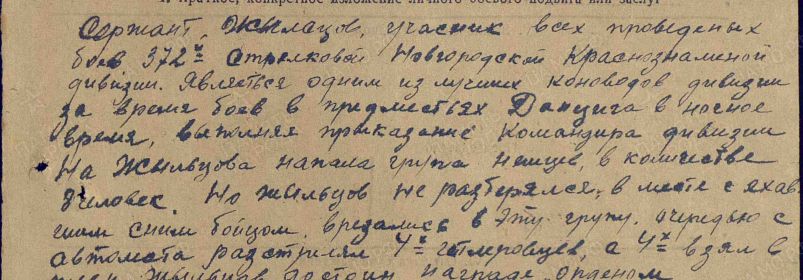 1. Краткое, конкретное изложение личного боевого подвига или заслуг
Сержант, Жыльцов, учасник всех проведеных
боев 372й Стрелковой Новгородской Краснознаменой
дивизии. Являеться одним из лучших коноводов дивизии
за время боев в предместьях Данцига в ночное
время, выполняя приказание Командира дивизии
На Жыльцова напала група немцев, в количестве
8 человек. Но Жыльцов не разтерялся, в месте с ехав
шим сним бойцом, врезались в эту групу, очередью с
автомата разстрелял 4х гетлеровцев, а 4х взял в
плен. Жыльцов достоин награде орденом